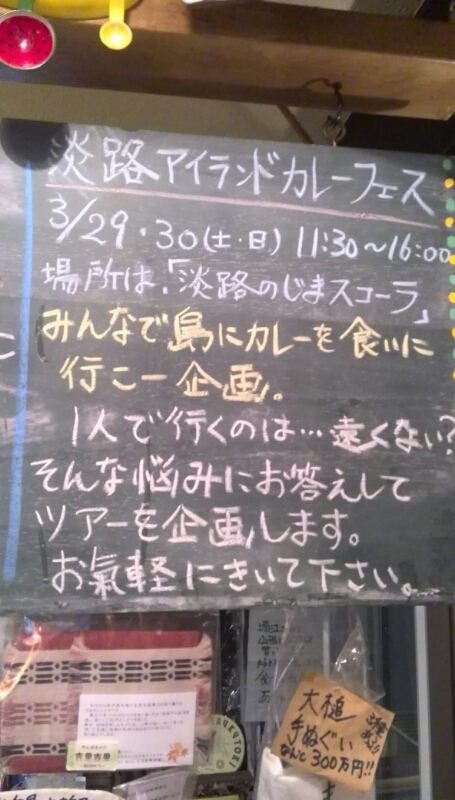 淡路アイランドカレーフェス
3/29・30(土・日) 11:30〜16:00
場所は、「淡路のじまスコーラ」
みんなで島にカレーを食いに
行こー企画。
1人で行くのは…遠くない?
そんな悩みにお答えして
ツアーを企画します。
お氣軽にきいて下さい。
大槌
手ぬぐい
なんと300万円!!